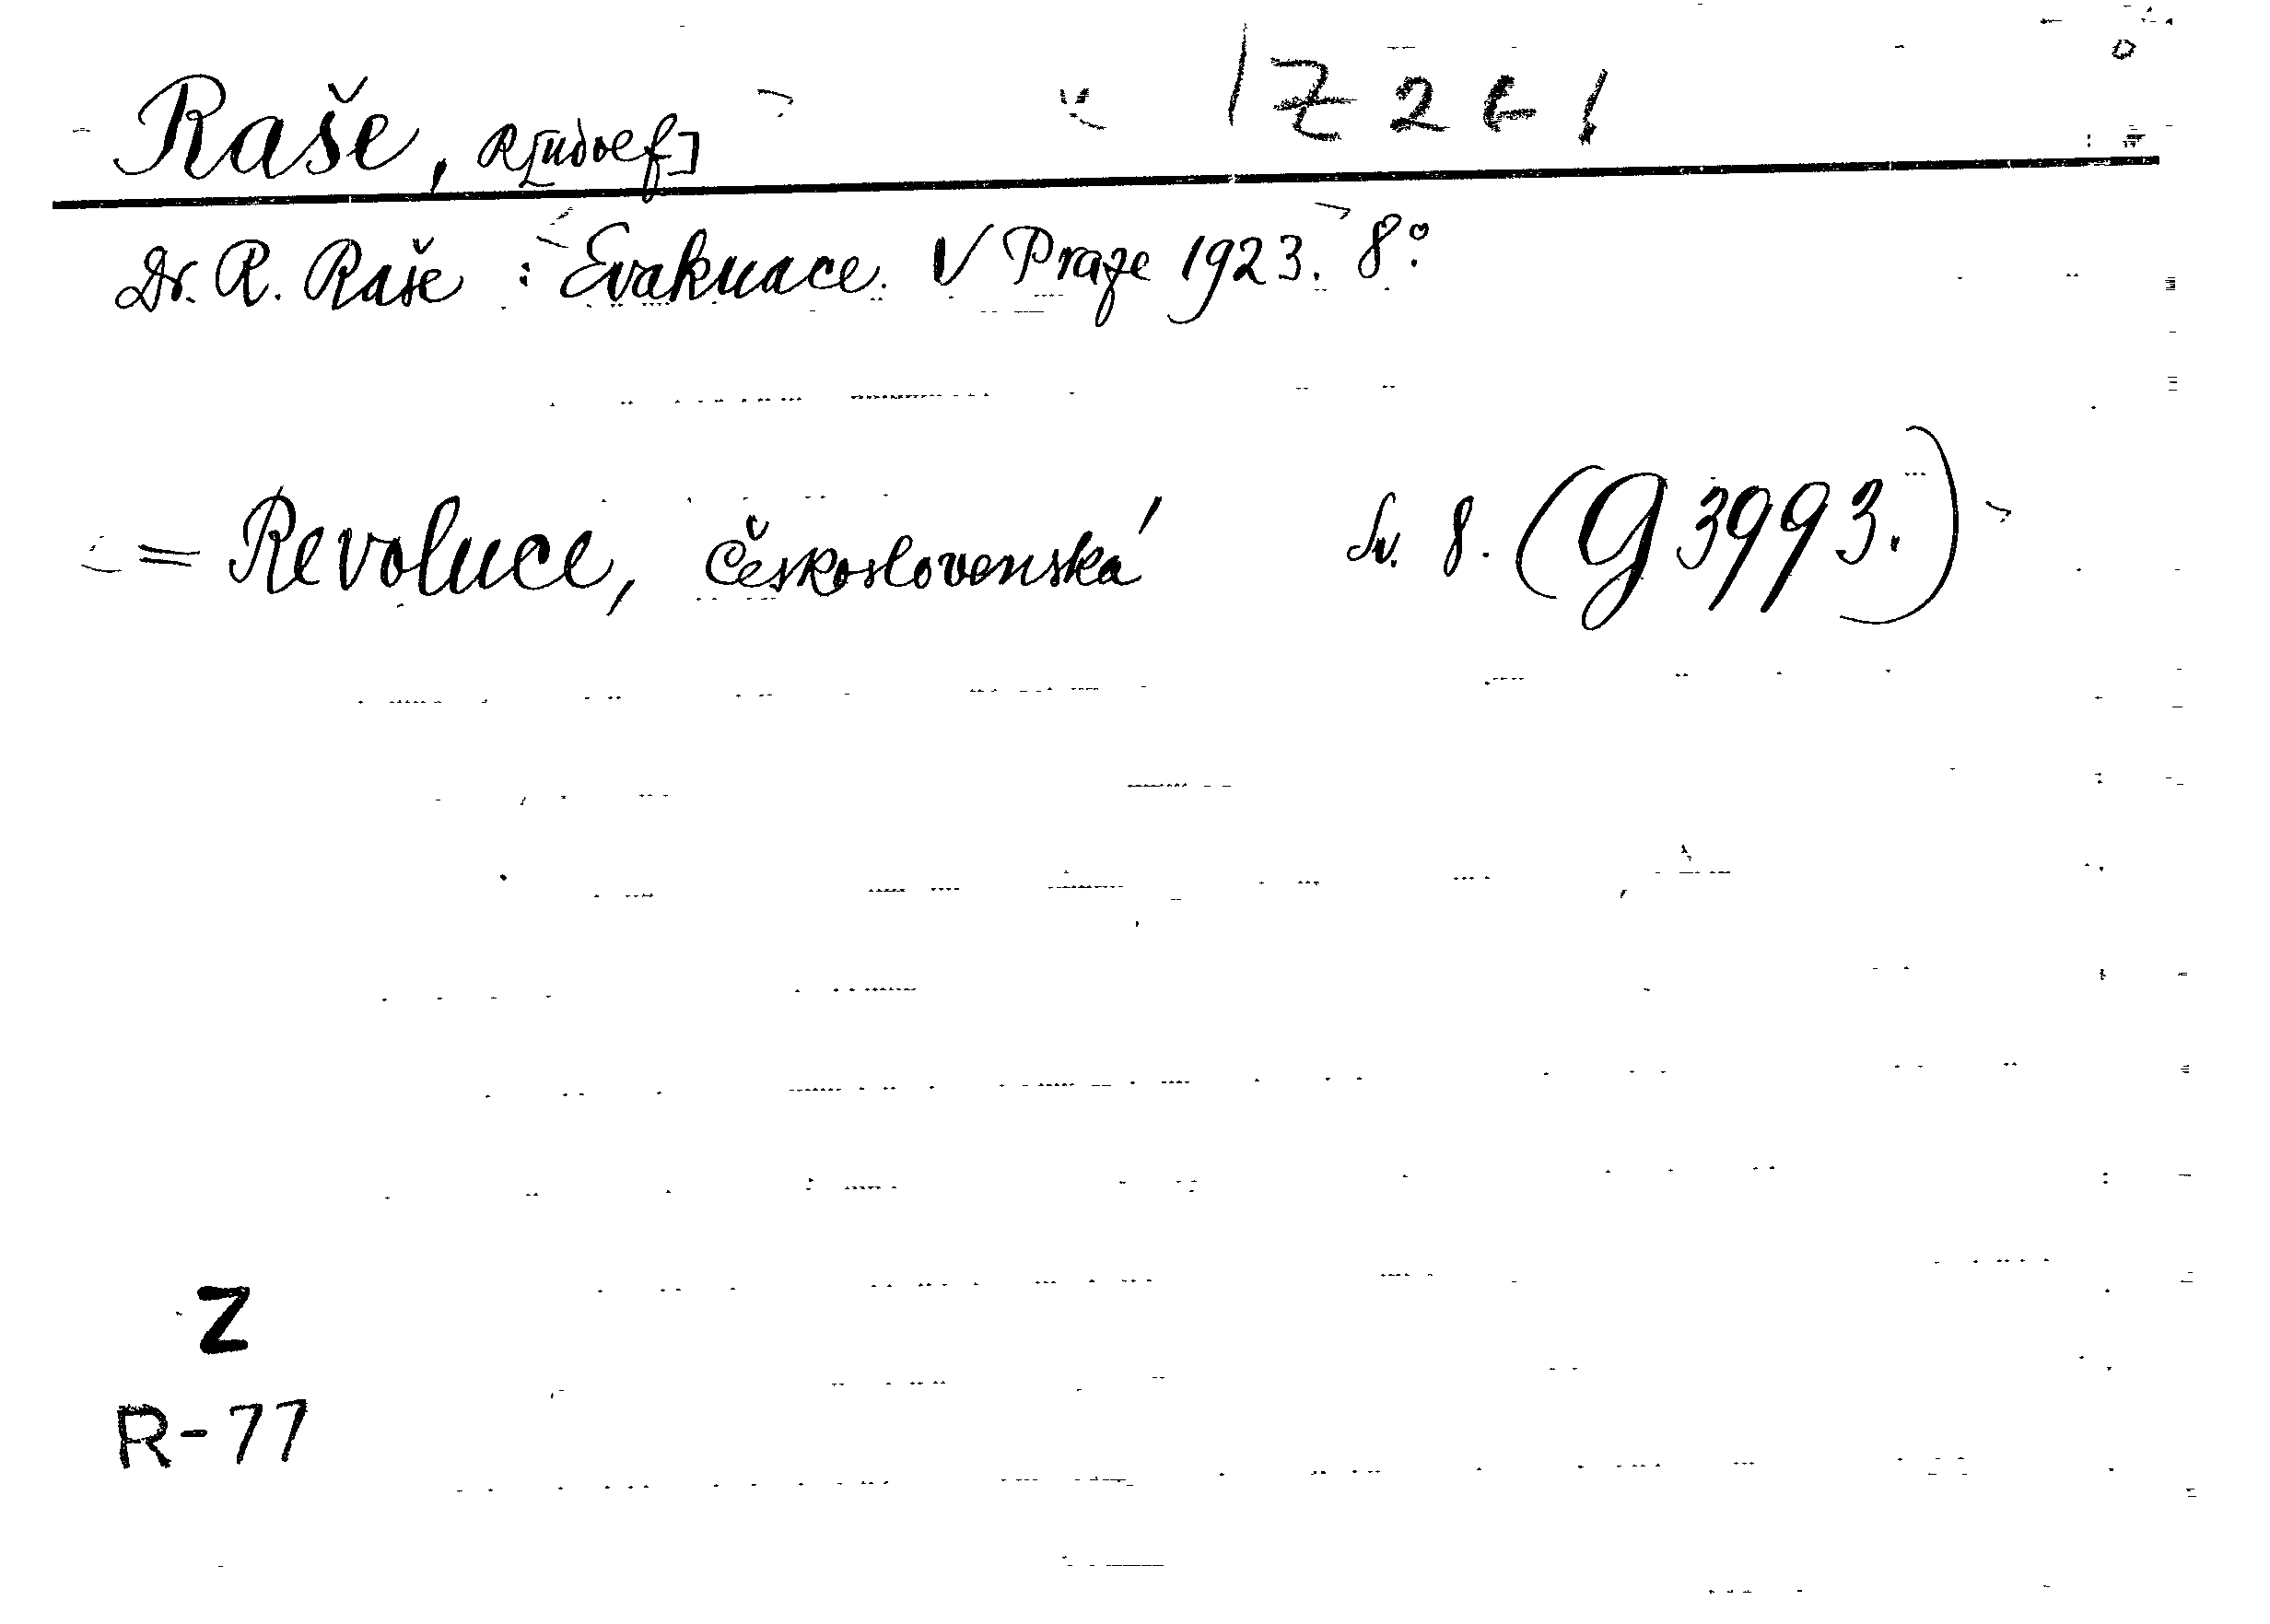 Raše, R[udolf]
Dr. R. Raše : Evakuace. V Praze 1923. 8°.
= Revoluce, Československá Sv. 8. (G 3993.)
Z
R-77